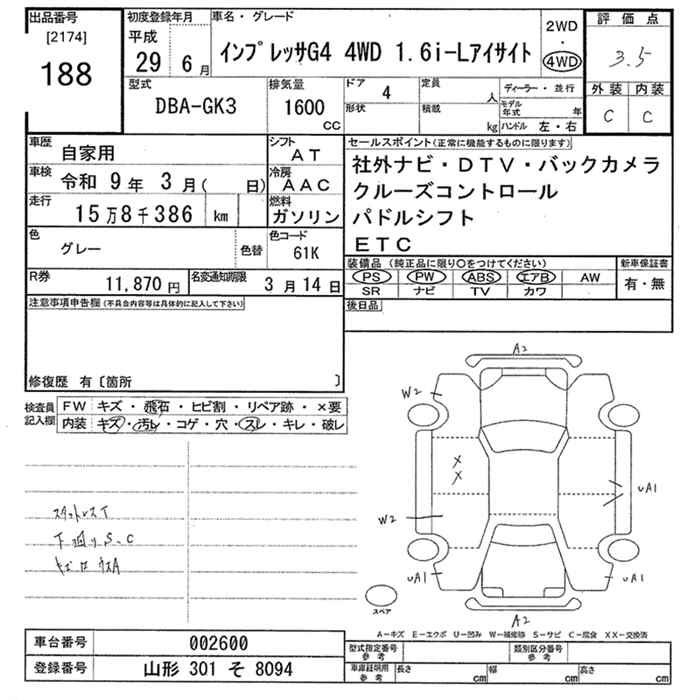 出品番号
[2174]
188
初度登録年月
平成
29年 6月
車名・グレード
インプレッサG4 4WD 1.6i-Lアイサイト
2WD
・
4WD
評価点
3.5
外装 内装
C C
型式
DBA-GK3
排気量
1600
CC
ドア 4
形状
定員 人
積載 kg
ディーラー・並行
モデル年式 年
ハンドル 左・右
車歴
自家用
シフト
AT
車検
令和 9年 3月( 日)
冷房
AAC
走行
15万8千386 km
燃料
ガソリン
色
グレー
色替
色コード
61K
R券
11,870円
名変通知期限
3月14日
セールスポイント(正常に機能するものに限ります)
社外ナビ・DTV・バックカメラ
クルーズコントロール
パドルシフト
ETC
装備品 (純正品に限り○をつけてください)
PS PW ABS エアB AW
SR ナビ TV カワ
新車保証書
有・無
後日品
注意事項申告欄(不具合内容等は具体的に記入して下さい)
修復歴 有〔箇所 〕
検査員記入欄
FW キズ・飛石・ヒビ割・リペア跡・×要
内装 キズ・汚れ・コゲ・穴・スレ・キレ・破レ
スタットレスT
下回りS.C
A2
W2
X
X
W2
UA1
UA1
UA1
A2
スペア
A−キズ E−エクボ U−凹み W−補修跡 S−サビ C−腐食 XX−交換済
車台番号
002600
登録番号
山形 301 そ 8094
型式指定番号
参考
類別区分番号
参考
車庫証明用
参考
長さ cm
幅 cm
高さ cm